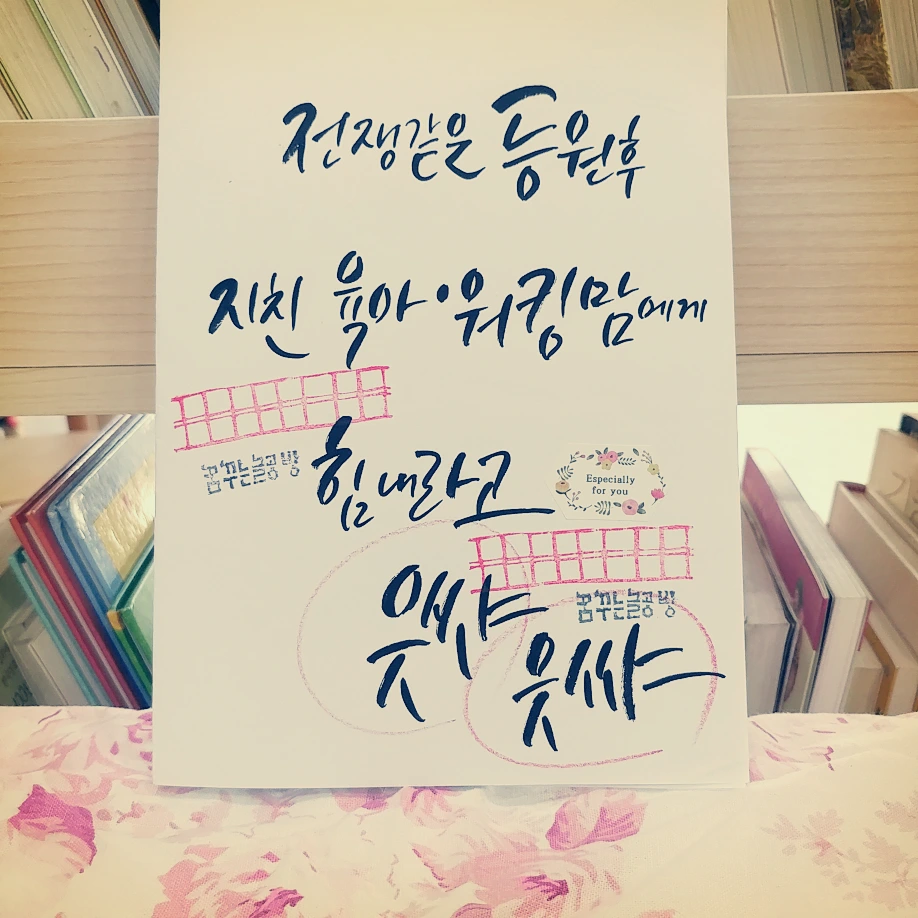 전쟁같은 등원후
지친 육아·워킹맘에게
꿈꾸는글방
힘내라고
Especially
for you
으쌰
꿈꾸는글방
읏쌰